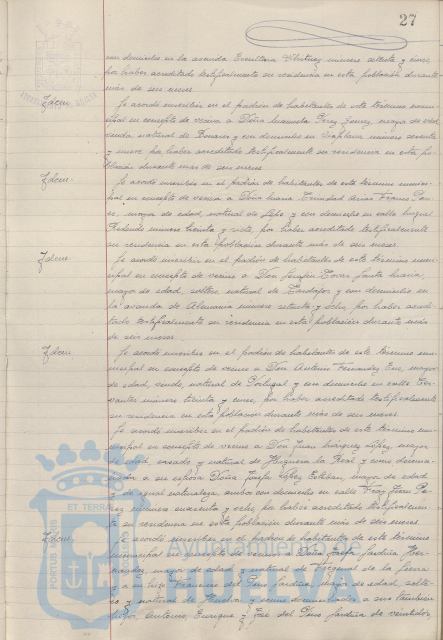 27
con domicilio en la avenida Escultora Whitney número setenta y cinco,
por haber acreditado testificalmente su residencia en esta población durante
más de seis meses.
Idem. Se acordó inscribir en el padrón de habitantes de este término muni-
cipal en concepto de vecina a Doña Manuela Pérez Gómez, mayor de edad,
viuda, natural de y con domicilio en número sesenta
y nueve por haber acreditado testificalmente su residencia en esta po-
blación durante más de seis meses.
Idem. Se acordó inscribir en el padrón de habitantes de este término munici-
pal en concepto de vecina a Doña María Trinidad Arias Franco
mayor de edad, natural de Lepe y con domicilio en calle Miguel
Redondo número treinta y siete, por haber acreditado testificalmente
su residencia en esta población durante más de seis meses.
Idem. Se acordó inscribir en el padrón de habitantes de este término muni-
cipal en concepto de vecino a Don Serafín Tovar
mayor de edad, soltero, natural de y con domicilio en
la avenida de Alemania número setenta y ocho, por haber acredi-
tado testificalmente su residencia en esta población durante más
de seis meses.
Idem. Se acordó inscribir en el padrón de habitantes de este término mu-
nicipal en concepto de vecino a Don Antonio Fernández mayor
de edad, viudo, natural de Portugal y con domicilio en calle Cer-
vantes número treinta y cinco, por haber acreditado testificalmente
su residencia en esta población durante más de seis meses.
Se acordó inscribir en el padrón de habitantes de este término mu-
nicipal en concepto de vecino a Don Juan Márquez López, mayor
de edad, casado y natural de Higuera la Real y como domici-
liada a su esposa Doña Josefa López Esteban, mayor de edad
y de igual naturaleza, ambos con domicilio en calle Fray Juan Pé-
rez número cuarenta y ocho, por haber acreditado testificalmen-
te su residencia en esta población durante más de seis meses.
Idem. Se acordó inscribir en el padrón de habitantes de este término
municipal en concepto de vecina a Doña Josefa Her-
nández, mayor de edad y natural de Fregenal de la Sierra
y a su hijo Francisco del Pino mayor de edad, solte-
ro y natural de Huelva y como domiciliados a sus también
hijos, Antonio, Enrique y José del Pino de veintidós,
PORTUS MARIS
ET TERRAE
Ayuntamiento de
HUELVA